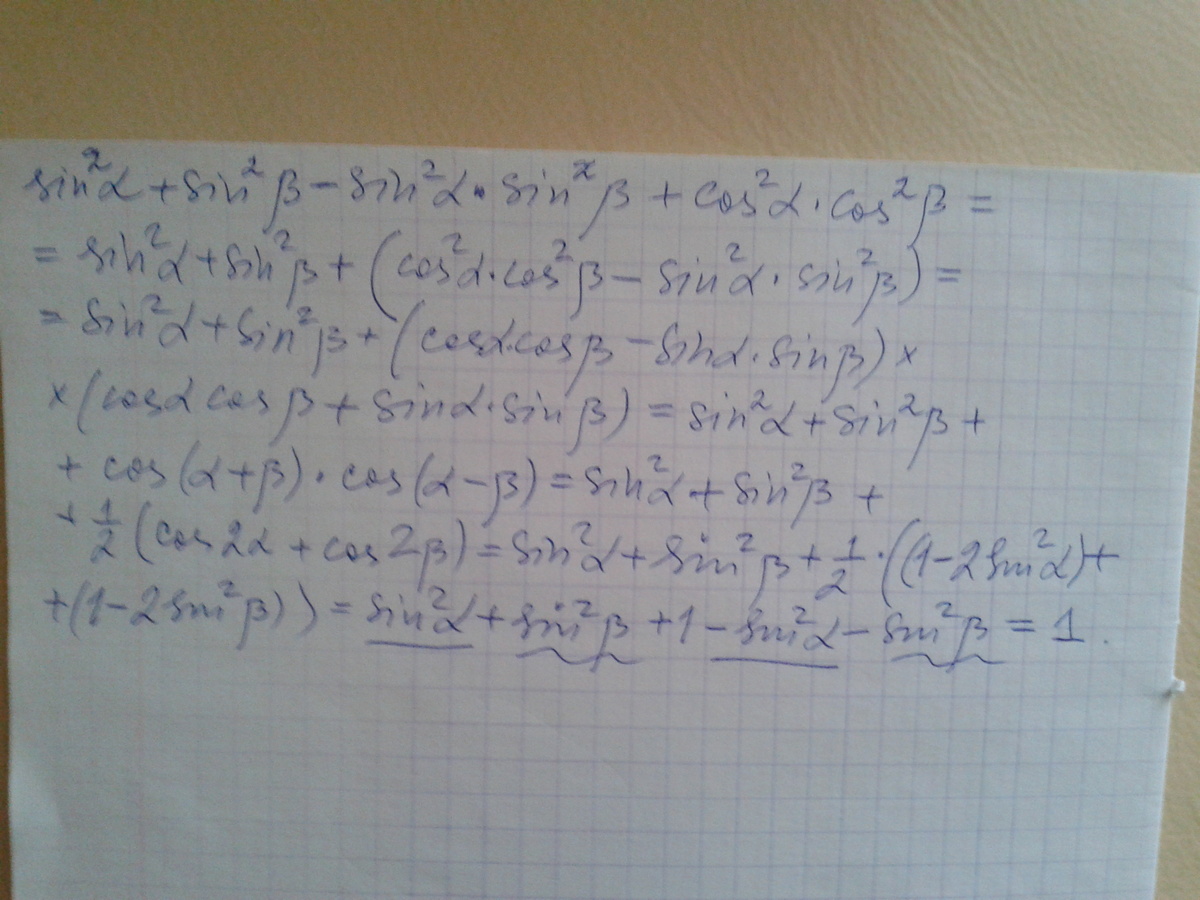 sin²α + sin²β − sin²α · sin²β + cos²α · cos²β =
= sin²α + sin²β + (cos²α · cos²β − sin²α · sin²β) =
= sin²α + sin²β + (cosα·cosβ − sinα · sinβ) ×
× (cosα cosβ + sinα · sinβ) = sin²α + sin²β +
+ cos(α+β) · cos(α−β) = sin²α + sin²β +
+ 1/2 (cos2α + cos2β) = sin²α + sin²β + 1/2 · ((1−2sin²α) +
+ (1−2sin²β)) = sin²α + sin²β + 1 − sin²α − sin²β = 1.